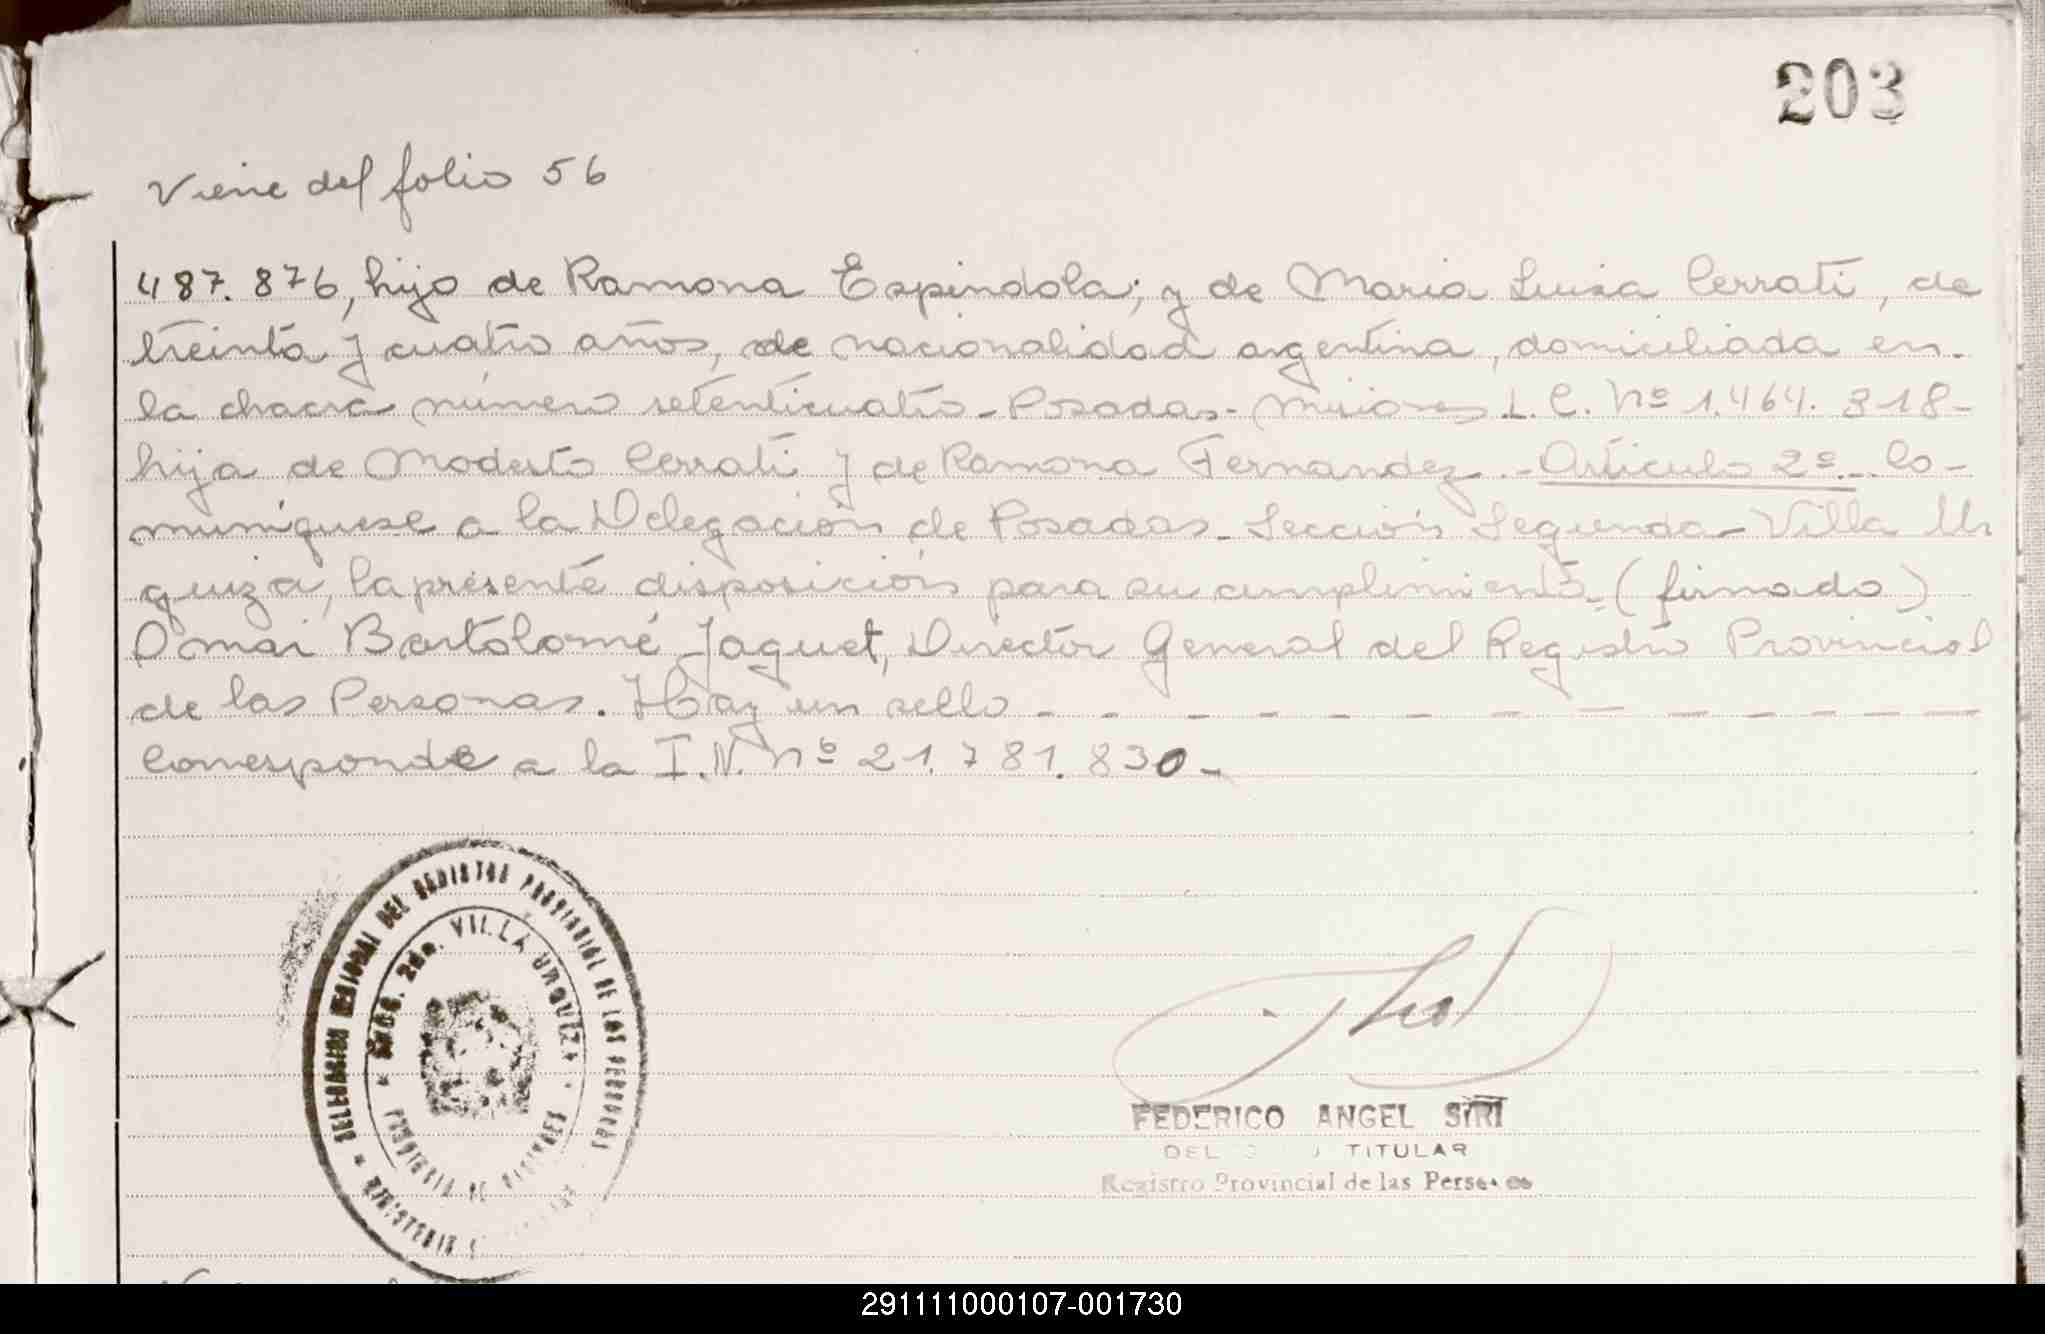 203
Viene del folio 56
487.876, hijo de Ramona Espindola; y de Maria Luisa Cerrati, de
treinta y cuatro años, de nacionalidad argentina, domiciliada en
la chacra número setenticuatro - Posadas - Misiones L.C. Nº 1.464.318-
hija de Modesto Cerrati y de Ramona Fernandez. - Articulo 2º - Co-
muníquese a la Delegación de Posadas - Sección Segunda - Villa Ur
quiza, la presente disposición para su cumplimiento. (firmado)
Omar Bartolomé Jaquet, Director General del Registro Provincial
de las Personas. Hay un sello - - - - - - - - - - - - -
Corresponde a la I.N. nº 21.781.830-
DELEGACION REGIONAL DEL REGISTRO PROVINCIAL DE LAS PERSONAS
SECC. 2da. VILLA URQUIZA
PROVINCIA DE MISIONES
MINISTERIO
FEDERICO ANGEL SIRI
TITULAR
Registro Provincial de las Personas
291111000107-001730